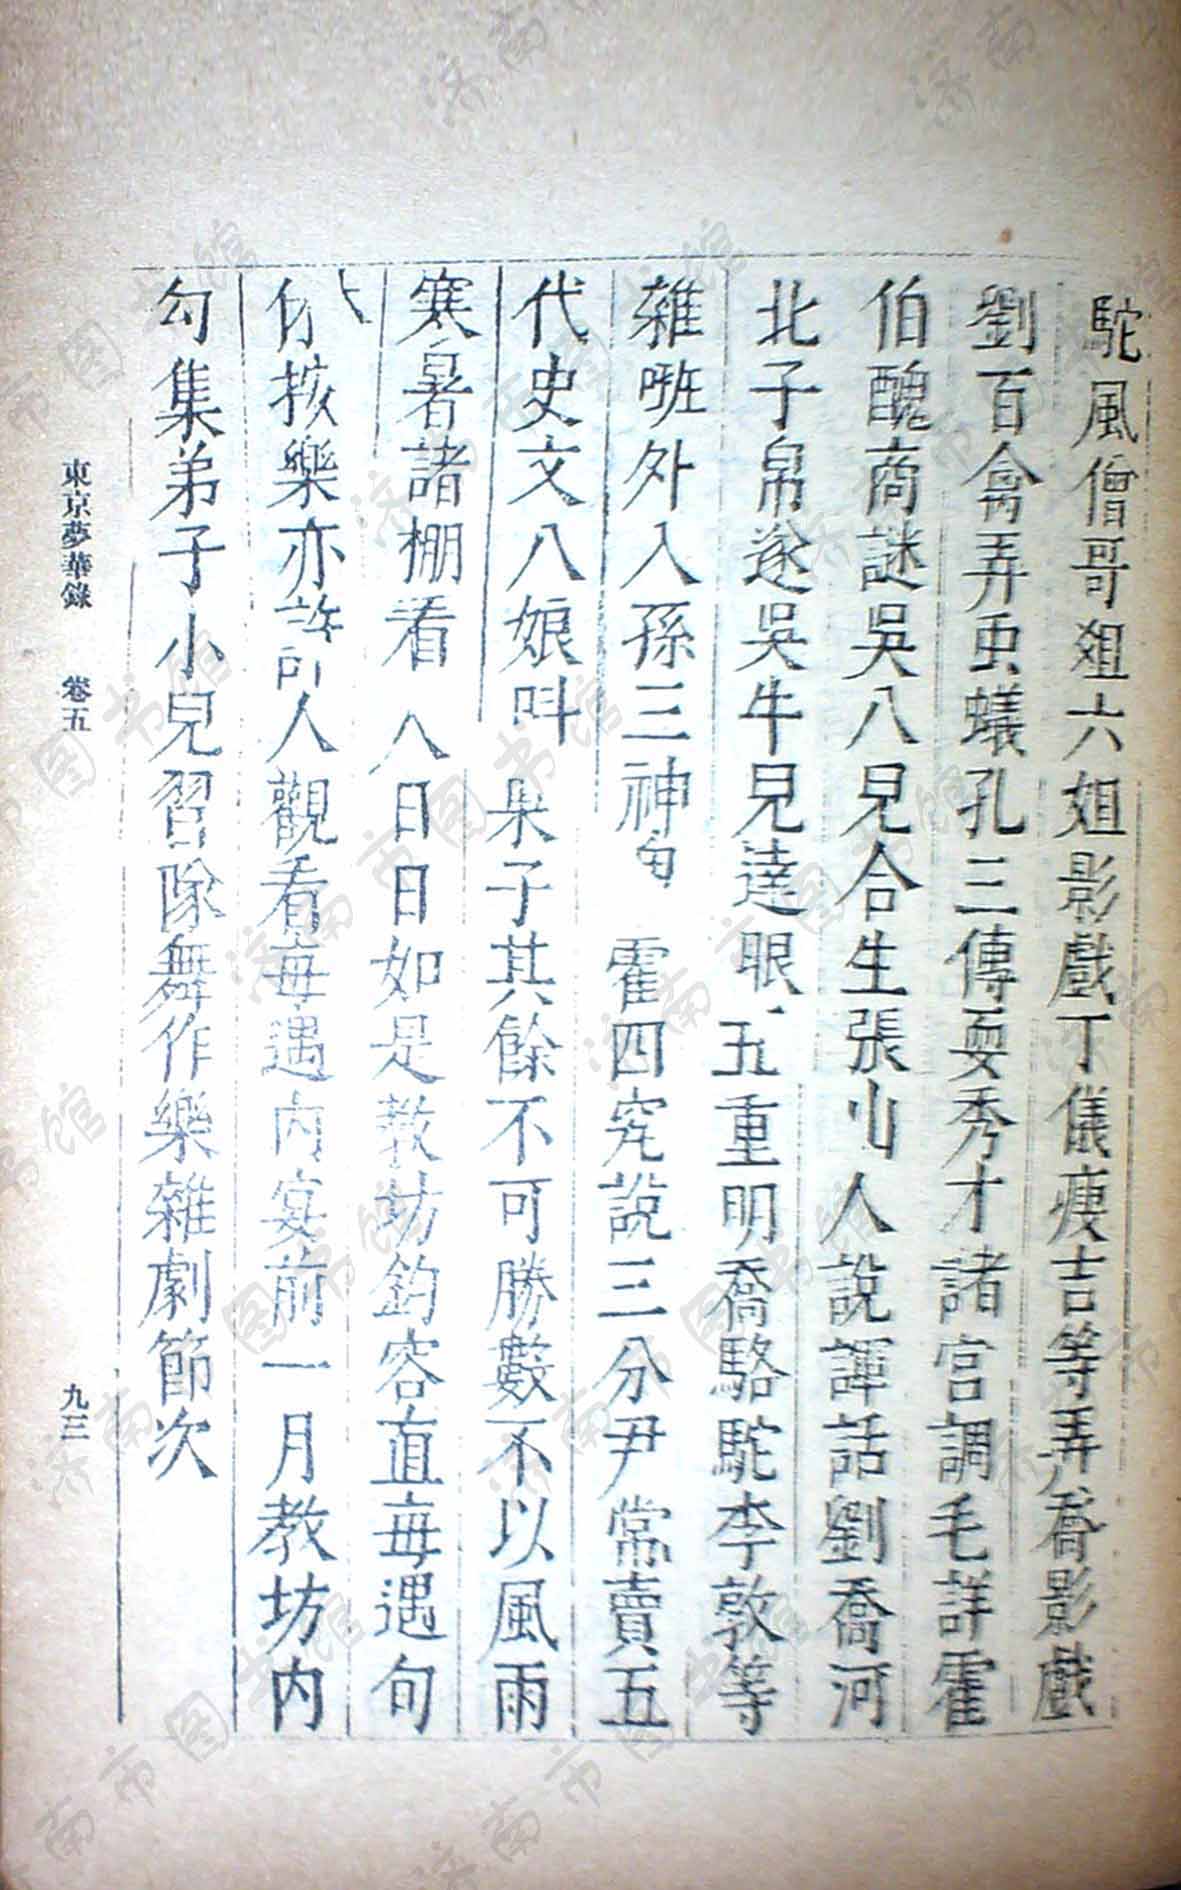 駝風僧哥爼六姐影戲丁儀瘦吉等弄喬影戲
劉百禽弄䖝蟻孔三傳耍秀才諸宫調毛詳霍
伯醜商謎吳八兒合生張山人說諢話劉喬河
北子帛遂吳牛兒達眼五重明喬駱駝李敦等
雜𠹌外入孫三神霍四究說三分尹常賣五
代史文八娘叫果子其餘不可勝數不以風雨
寒暑諸棚看人日日如是教坊鈞容直每遇旬
休按樂亦許人觀看每遇内宴前一月教坊内
勾集弟子小兒習隊舞作樂雜劇節次
東京夢華錄 卷五 九三
济南市图书馆